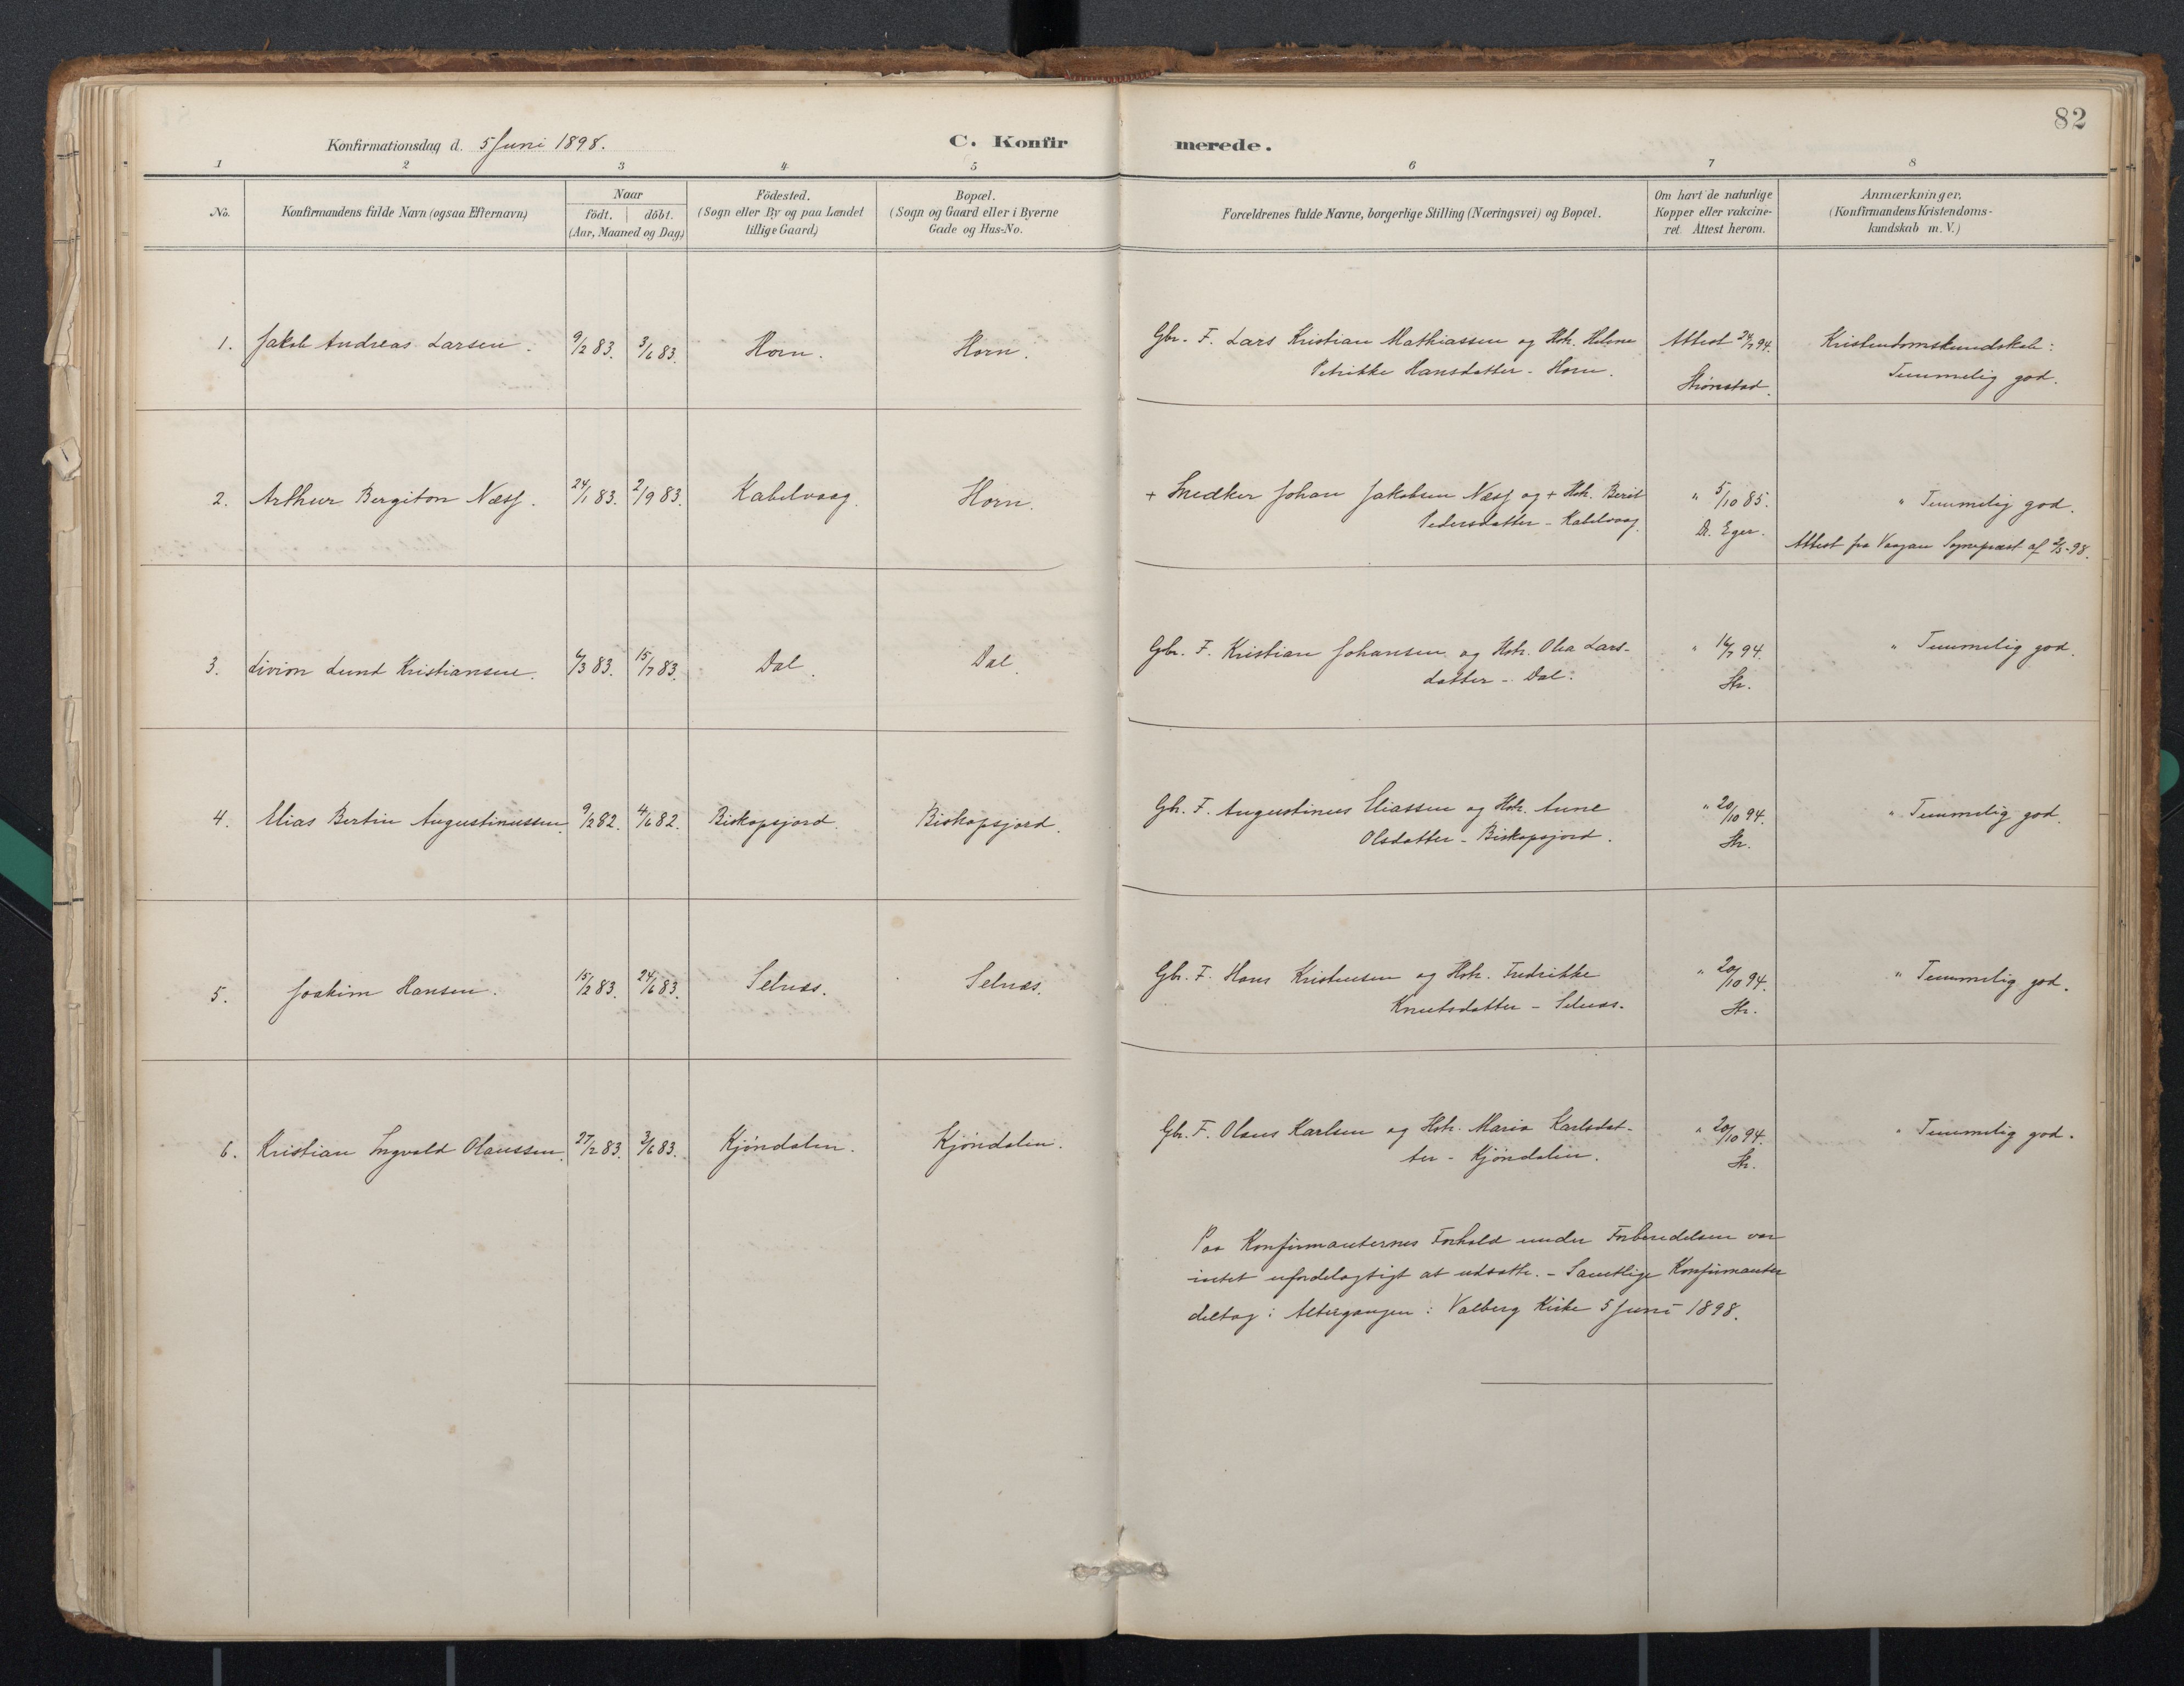 82
Konfirmationsdag d. 5 Juni 1898. C. Konfirmerede.
1 2 3 4 5 6 7 8
No. Konfirmandens fulde Navn (ogsaa Efternavn) Naar födt. döbt. (Aar, Maaned og Dag) Födested. (Sogn eller By og paa Landet tillige Gaard) Bopæl. (Sogn og Gaard eller i Byerne Gade og Hus-No. Forældrenes fulde Navne, borgerlige Stilling (Næringsvei) og Bopæl. Om havt de naturlige Kopper eller vakcineret. Attest herom. Anmærkninger. (Konfirmandens Kristendomskundskab m.V.)
1. Jakob Andreas Larsen. 9/2 83. 3/6 83. Horn. Horn. Gbr. F. Lars Kristian Mathiassen og Hstr. Helene Attest 24/7 94. Kristendomskundskab:
Petrikke Hansdatter - Horn. Strönstad. Temmelig god.
2. Arthur Bergiton Næss. 24/1 83. 2/9 83. Kabelvaag. Horn. + Snedker Johan Jakobsen Næss og + Hstr. Berit " 5/10 85. " Temmelig god.
Pedersdatter - Kabelvaag. Dr. Eger. Attest fra Vaagan Sognepræst af 2/5-98.
3. Livion Lund Kristiansen. 6/3 83. 15/7 83. Dal. Dal. Gbr. F. Kristian Johansen og Hstr. Olea Lars- " 16/7 94. " Temmelig god.
datter - Dal. Str.
4. Elias Bertin Augustinussen. 9/2 82. 4/6 82. Biskopsjord. Biskopsjord. Gbr. F. Augustinus Eliassen og Hstr. Anne " 20/10 94. " Temmelig god.
Olsdatter - Biskopsjord. Str.
5. Joakim Hansen. 15/2 83. 24/6 83. Selnæs. Selnæs. Gbr. F. Hans Kristensen og Hstr. Fredrikke " 20/10 94. " Temmelig god.
Knutsdatter - Selnæs. Str.
6. Kristian Ingvald Olaussen. 27/2 83. 3/6 83. Kjöndalen. Kjöndalen. Gbr. F. Olaus Karlsen og Hstr. Maria Karlsdat- " 20/10 94. " Temmelig god.
ter - Kjöndalen. Str.
Paa Konfirmanternes Forhold under Forberedelsen var
intet ufordelagtigt at udsætte. - Samtlige Konfirmanter
deltog i Altergangen i Valberg Kirke 5 Juni 1898.